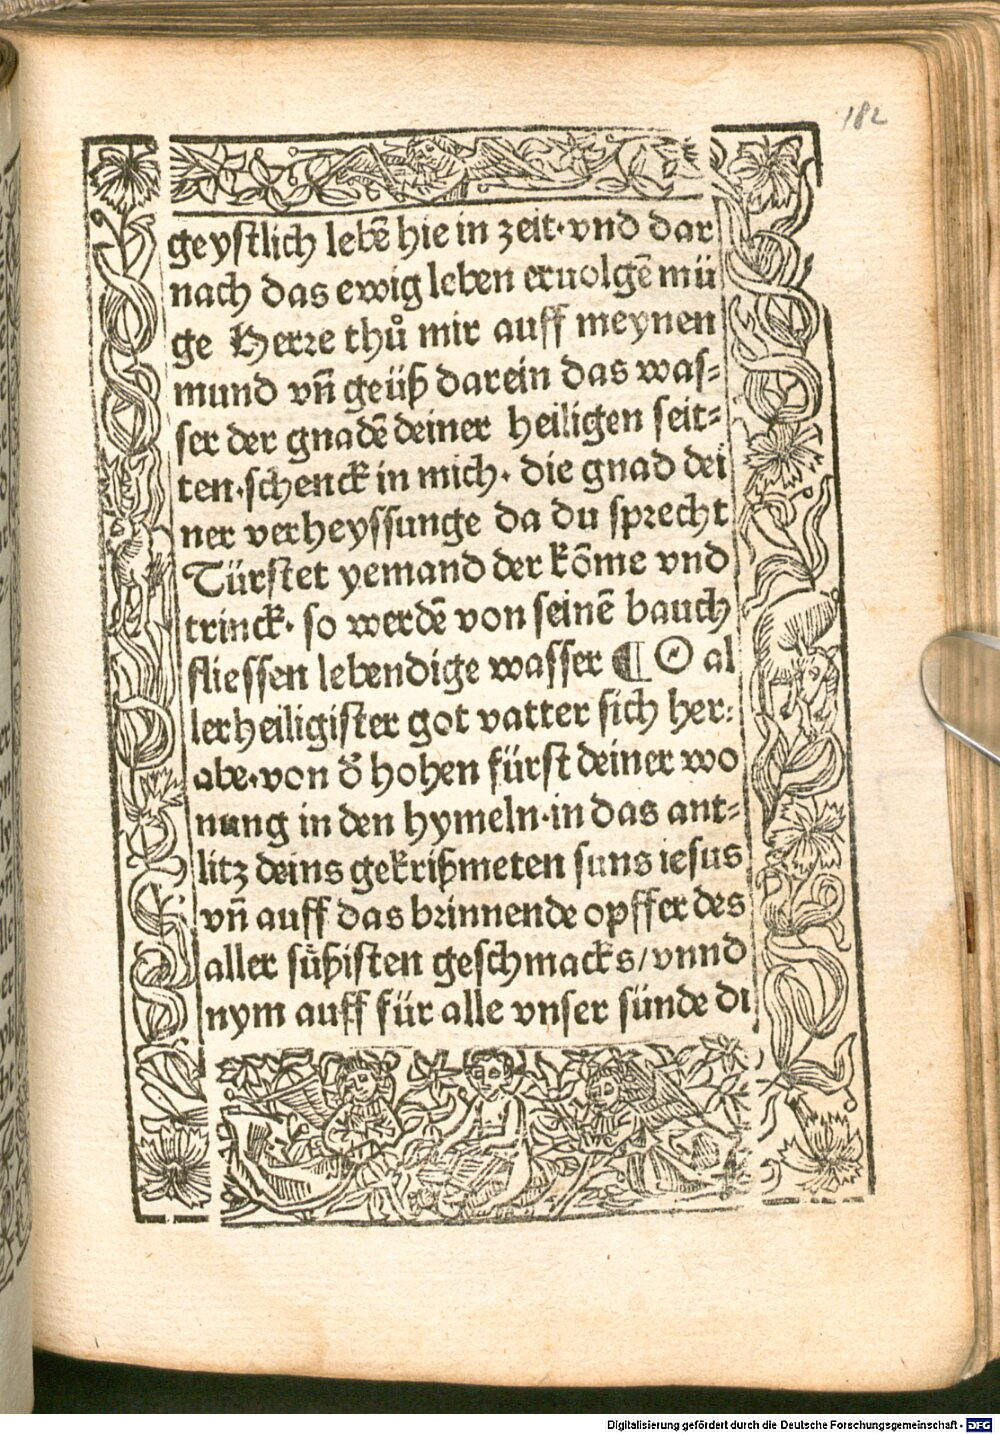 182
geystlich lebē hie in zeit·vnd dar
nach das ewig leben eruolgē mü
ge Herre thů mir auff meynen
mund vñ geüß darein das was⸗
ser der gnadē deiner heiligen seit⸗
ten·schenck in mich· die gnad dei
ner verheyssunge da du sprecht
Türstet yemand der kōme vnd
trinck· so werdē von seinē bauch
fliessen lebendige wasser ¶ O al
lerheiligister got vatter sich her⸗
abe·von d̄ hohen fürst deiner wo
nung in den hymeln·in das ant⸗
litz deins gekrißmeten suns iesus
vñ auff das brinnende opffer des
aller süßisten geschmacks/vnnd
nym auff für alle vnser sünde di
Digitalisierung gefördert durch die Deutsche Forschungsgemeinschaft - DFG